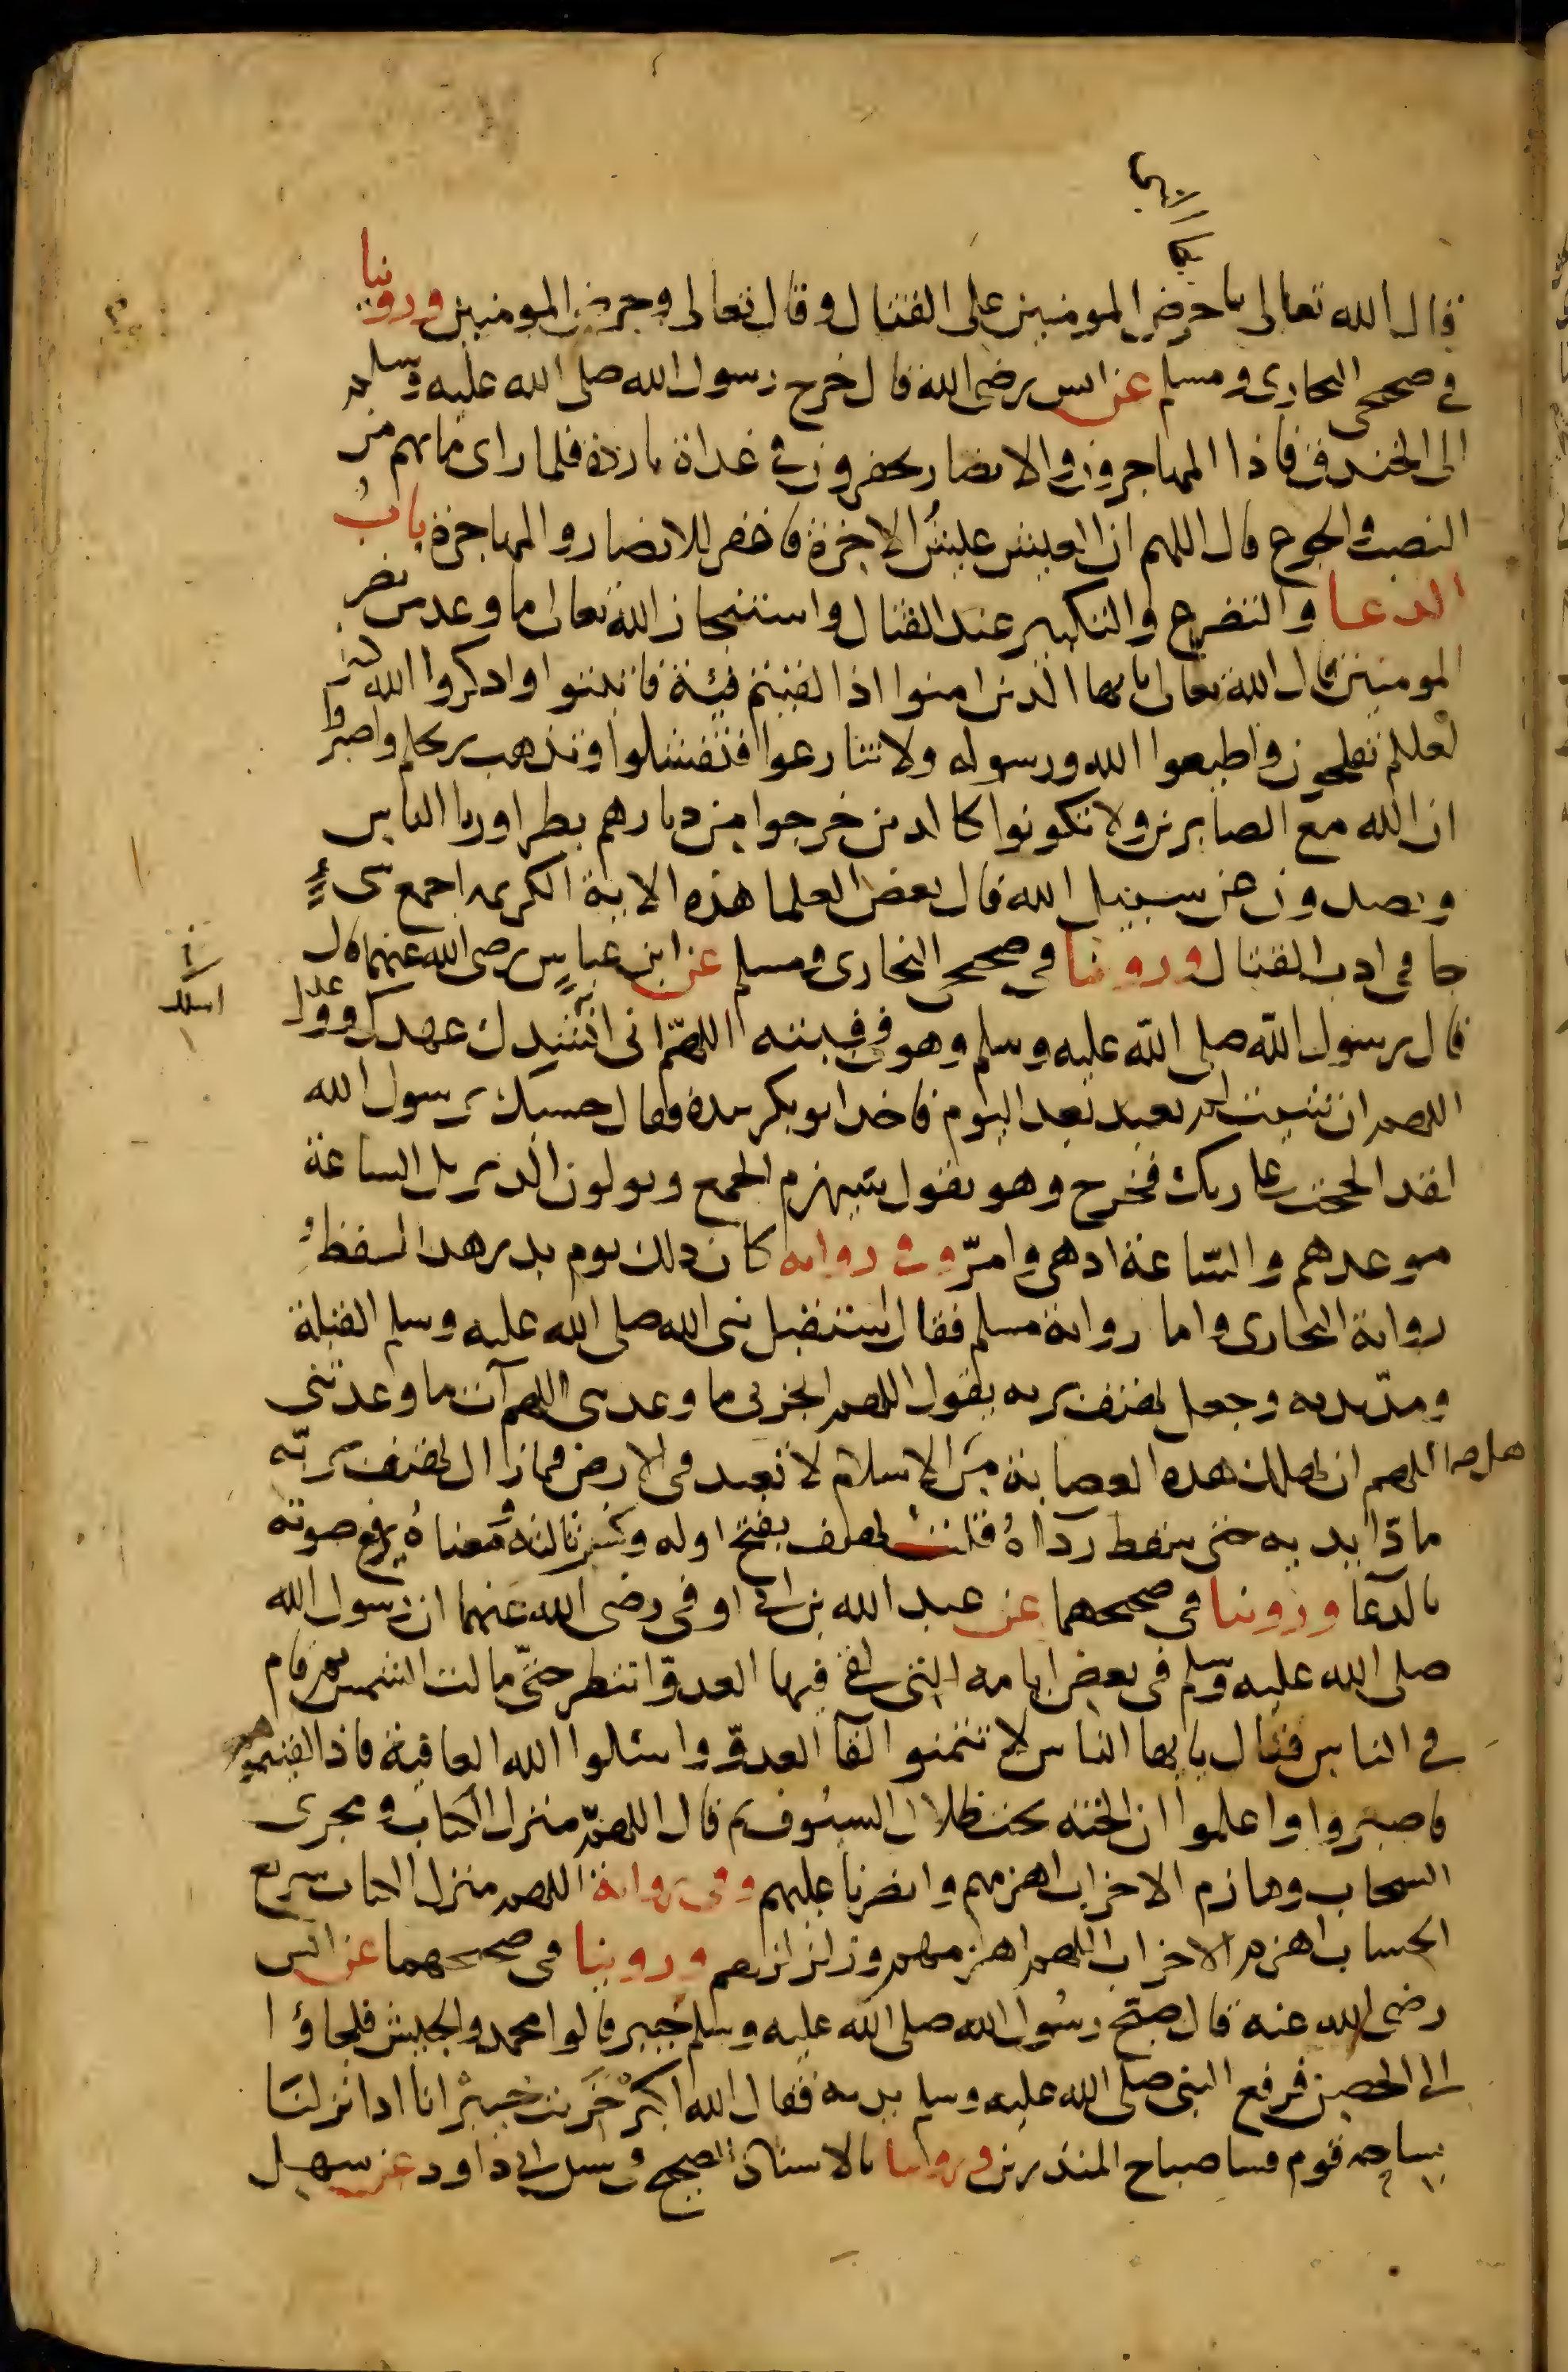 ايها
يا
قال الله تعالى يا حرض المومنين على القتال وقال تعالى وحرض المومنين وروينا
في صحيحي البخاري ومسلم عن انس رضي الله قال خرج رسول الله صلى الله عليه وسلم
الى الخندق فاذا المهاجرون والانصار يحفرون في غداة باردة فلما راى ما بهم من
النصب والجوع قال اللهم ان العيش عيش الاخرة فاغفر للانصار والمهاجرة باب
الدعا والتضرع والتكبير عند القتال واستنجاز الله تعالى ما وعد من نصر
المومنين قال الله تعالى يا يها الذين امنوا اذا لقيتم فيئة فاثبتوا واذكروا الله كثيرا
لعلكم تفلحون واطيعوا الله ورسوله ولا تنازعوا فتفشلوا وتذهب ريحكم واصبروا
ان الله مع الصابرين ولا تكونوا كالذين خرجوا من ديارهم بطرا وريا الناس
ويصدون عن سبيل الله قال بعض العلما هذه الاية الكريمه اجمع شيء
جا في ادب القتال وروينا في صحيح البخاري ومسلم عن ابن عباس رضي الله عنهما قال
قال رسول الله صلى الله عليه وسلم وهو في قبته اللهم اني انشدك عهدك ووعدك
اللهم ان شيت لم تعبد بعد اليوم فاخذ ابو بكر بيده فقال حسبك يرسول الله
لقد الححت على ربك فخرج وهو يقول سيهزم الجمع ويولون الدبر بل الساعة
موعدهم والساعة ادهى وامرّ وفي روايه كان ذلك يوم بدر هذا لفظ
رواية البخاري واما رواية مسلم فقال استقبل نبي الله صلى الله عليه وسلم القبلة
ومدّ يديه وجعل يهتف بربه يقول اللهم انجز لي ما وعدتني اللهم آت ما وعدتني
اللهم ان تهلك هذه العصابة من الاسلام لا تعبد في الارض فما زال يهتف بربّه
مادّا يديه حتى سقط رداؤهُ قلت يهتف بفتح اوله وكسر ثالثه ومعناهُ يرفع صوته
بالدعا وروينا في صحيحهما عن عبد الله بن ابي اوفى رضي الله عنهما ان رسول الله
صلى الله عليه وسلم في بعض ايامه التي لقي فيها العدوّ انتظر حتّى مالت الشمس ثم قام
في الناس فقال يا يها الناس لا تتمنو القآ العدوّ واسئلوا الله العافية فاذا لقيتموهم
فاصبروا واعلموا ان الجنة تحت ظلال السيوف ثم قال اللهمّ منزل الكتاب ومجرى
السحاب وهازم الاحزاب اهزمهم وانصرنا عليهم وفي رواية اللهم منزل الكتاب سريع
الحساب اهزم الاحزاب اللهم اهزمهم وزلزلهم وروينا في صحيحهما عن انس
رضي الله عنه قال صبّح رسول الله صلى الله عليه وسلم خيبر قالوا محمد والجيش فلجاؤا
الى الحصن فرفع النبي صلى الله عليه وسلم يديه فقال الله اكبر خربت خيبر انا اذا نزلنا
بساحه قوم فسا صباح المنذرين وروينا بالاسناد الصحيح في سنن ابي داود عن سهل